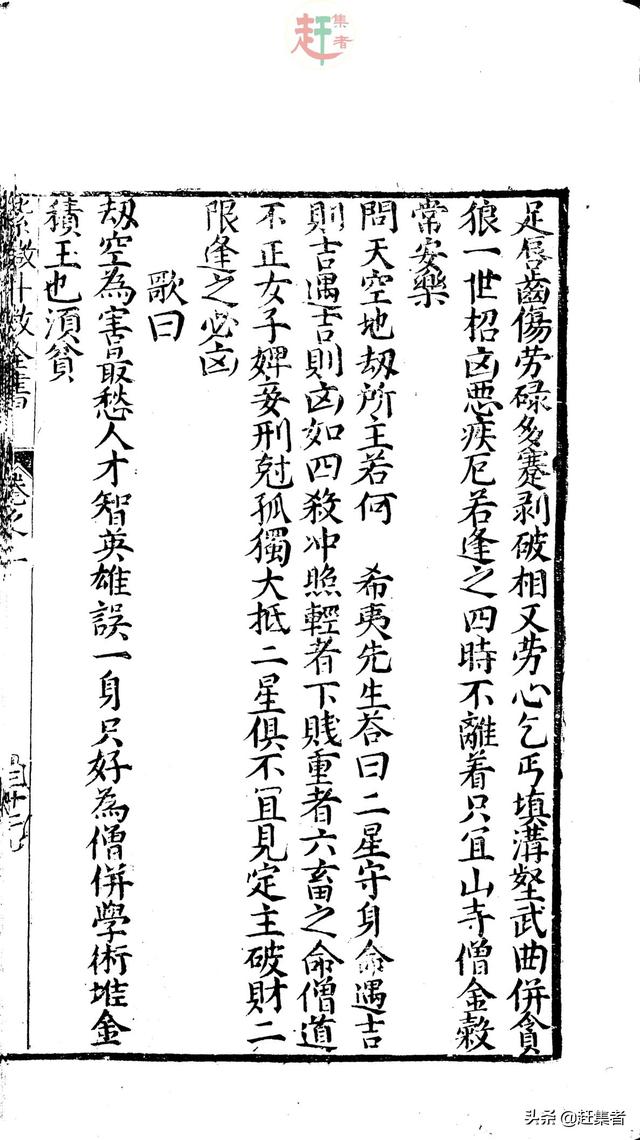 赶集者
足唇齒傷勞碌多蹇剥破相又勞心乞丐填溝壑武曲併貪
狼一世招凶惡疾厄若逢之四時不離着只宜山寺僧金穀
常安樂
問天空地刼所主若何 希夷先生荅曰二星守身命遇吉
則吉遇吉則凶如四殺冲照輕者下賤重者六畜之命僧道
不正女子婢妾刑尅孤獨大抵二星俱不宜見定主破財二
限逢之必凶
歌曰
刼空為害最愁人才智英雄誤一身只好為僧併學術堆金
積玉也須貧
紫微斗数全書 卷之一
头条 @赶集者